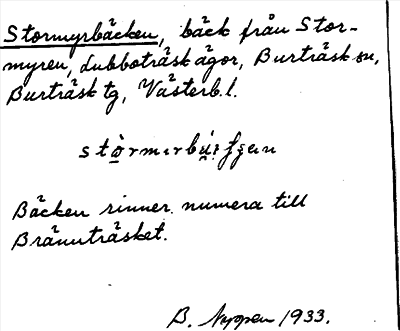 Stormyrbäcken, bäck från Stor-
myren, Lubboträsk ägor, Burträsk sn,
Burträsk tg, Västerb.l.
Bäcken rinner numera till
Bränträsket.
B. 1933.